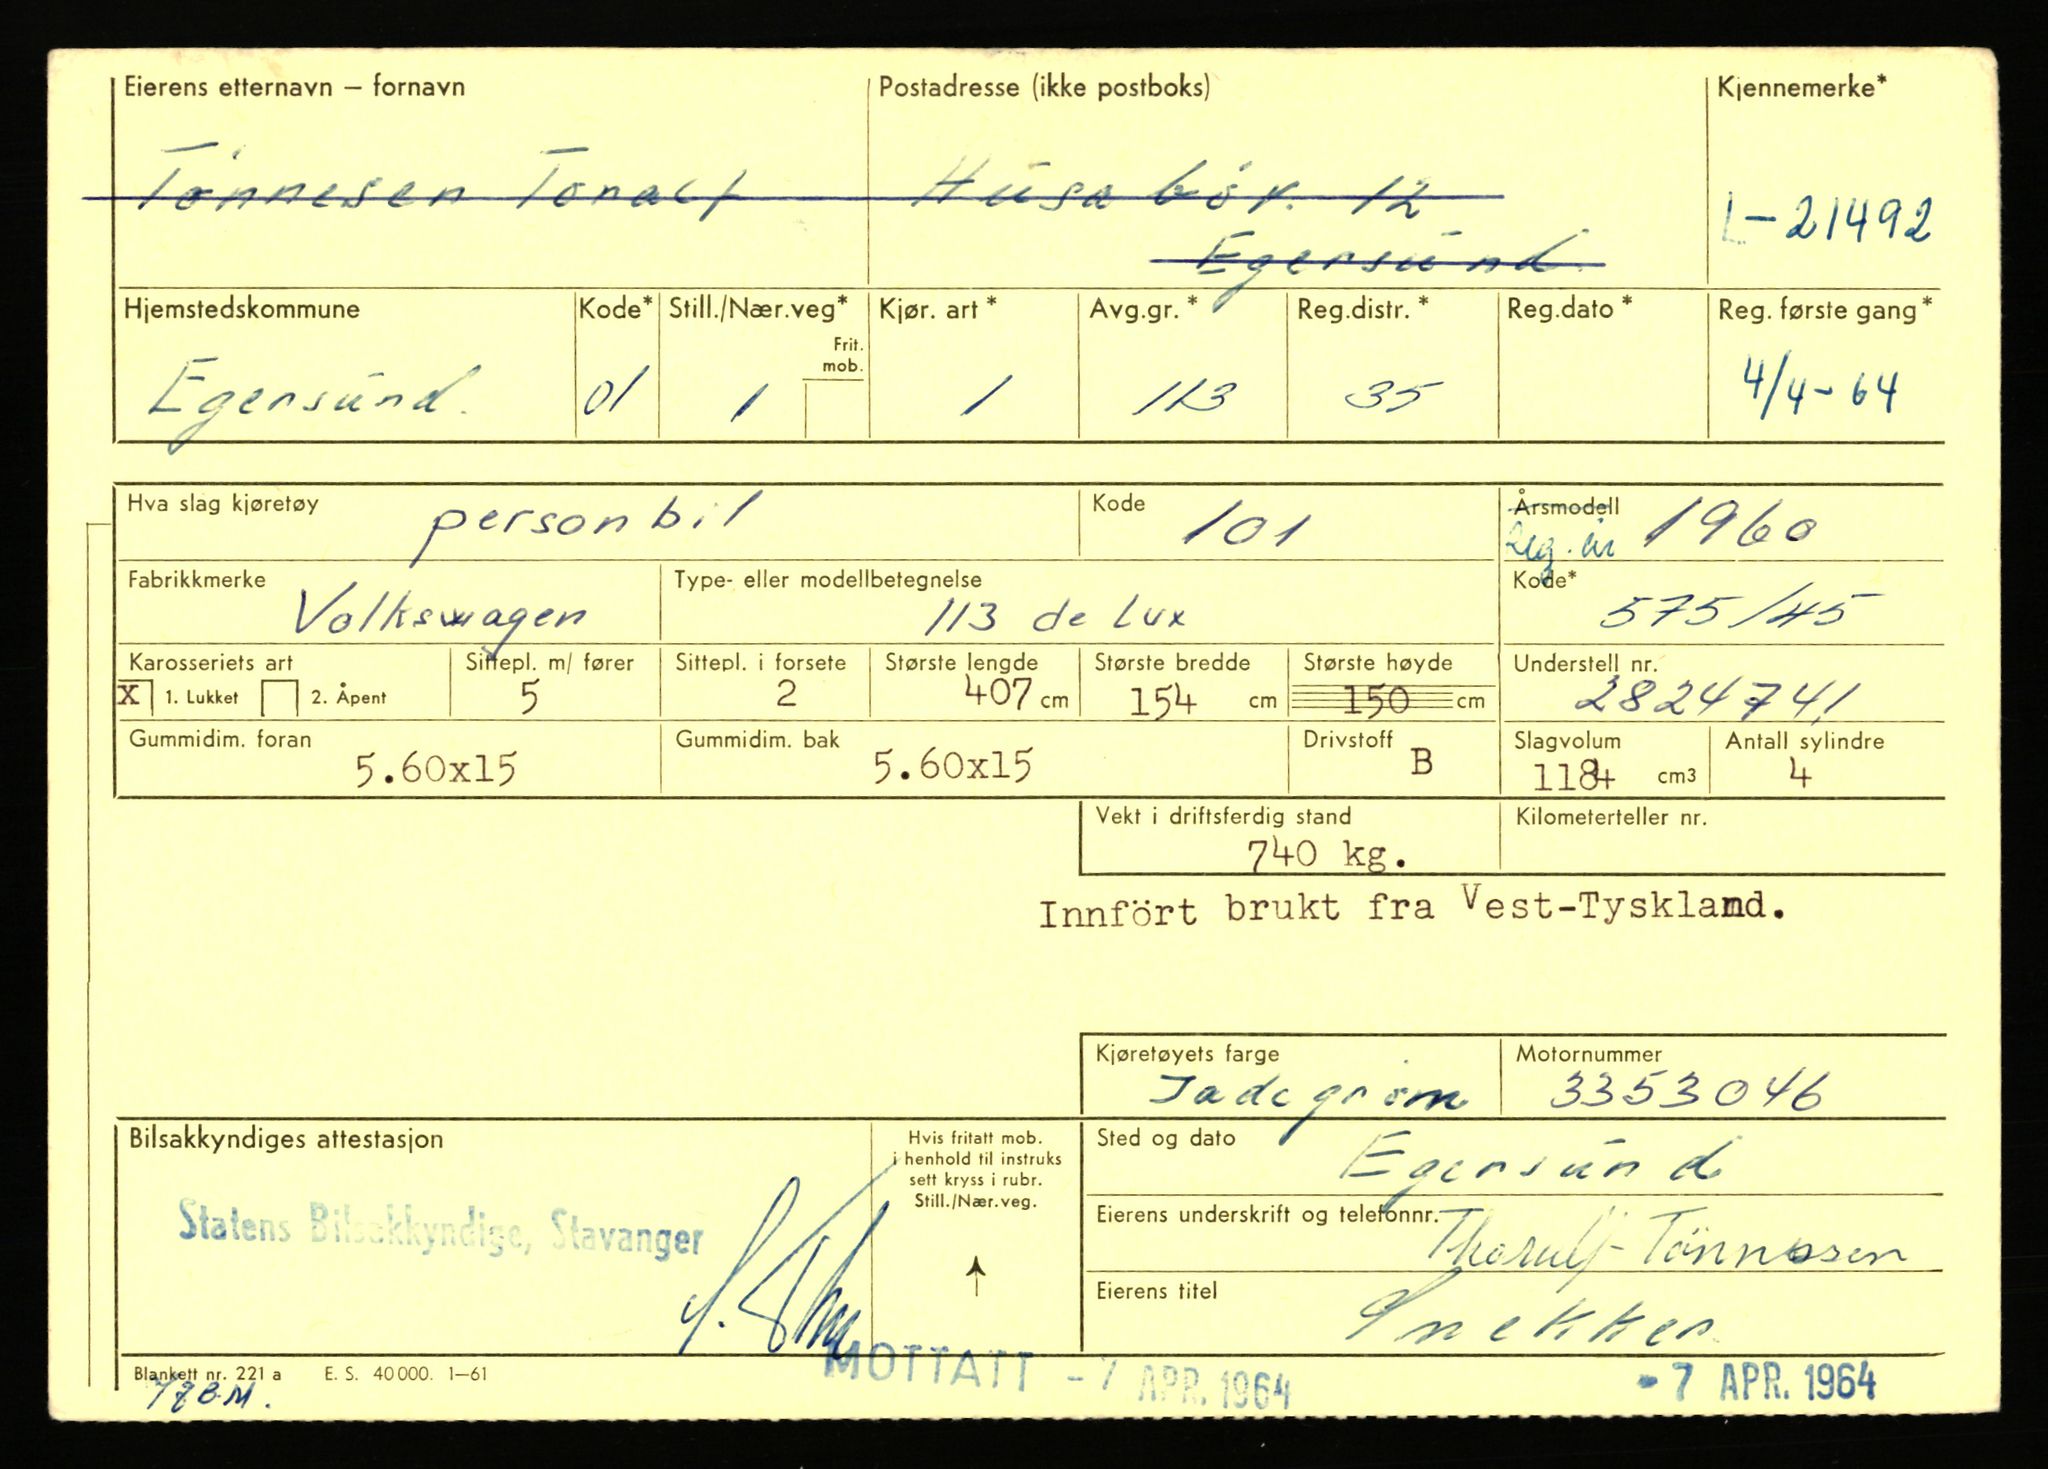 Eierens etternavn – fornavn Postadresse (ikke postboks) Kjennemerke*
Tønnesen Toralf Husabøv. 12 L-21492
Egersund
Hjemstedskommune Kode* Still./Nær.veg* Kjør. art* Avg.gr.* Reg.distr.* Reg.dato* Reg. første gang*
Frit. mob.
Egersund. 01 1 1 113 35 4/4-64
Hva slag kjøretøy personbil Kode 101 Årsmodell 1960
Reg. år
Fabrikkmerke Type- eller modellbetegnelse Kode*
Volkswagen 113 de Lux 575/45
Karosseriets art Sittepl. m/ fører Sittepl. i forsete Største lengde Største bredde Største høyde Understell nr.
X 1. Lukket 2. Åpent 5 2 407 cm 154 cm 150 cm 2824741
Gummidim. foran Gummidim. bak Drivstoff Slagvolum Antall sylindre
5.60x15 5.60x15 B 1184 cm3 4
Vekt i driftsferdig stand Kilometerteller nr.
740 kg.
Innfört brukt fra Vest-Tyskland.
Kjøretøyets farge Motornummer
Jadegrøn 3353046
Bilsakkyndiges attestasjon
Hvis fritatt mob.
i henhold til instruks
sett kryss i rubr.
Still./Nær.veg.
Sted og dato Egersund
Statens Bilsakkyndige, Stavanger
Eierens underskrift og telefonnr. Thorulf Tönnessen
Eierens titel Snekker
Blankett nr. 221 a E. S. 40 000. 1–61
MOTTATT - 7 APR. 1964
- 7 APR. 1964